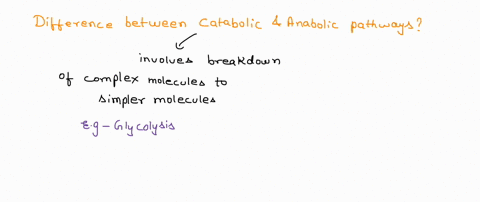 Difference between Catabolic & Anabolic pathways?
involves breakdown
of complex molecules to
simpler molecules
E.g - Glycolysis